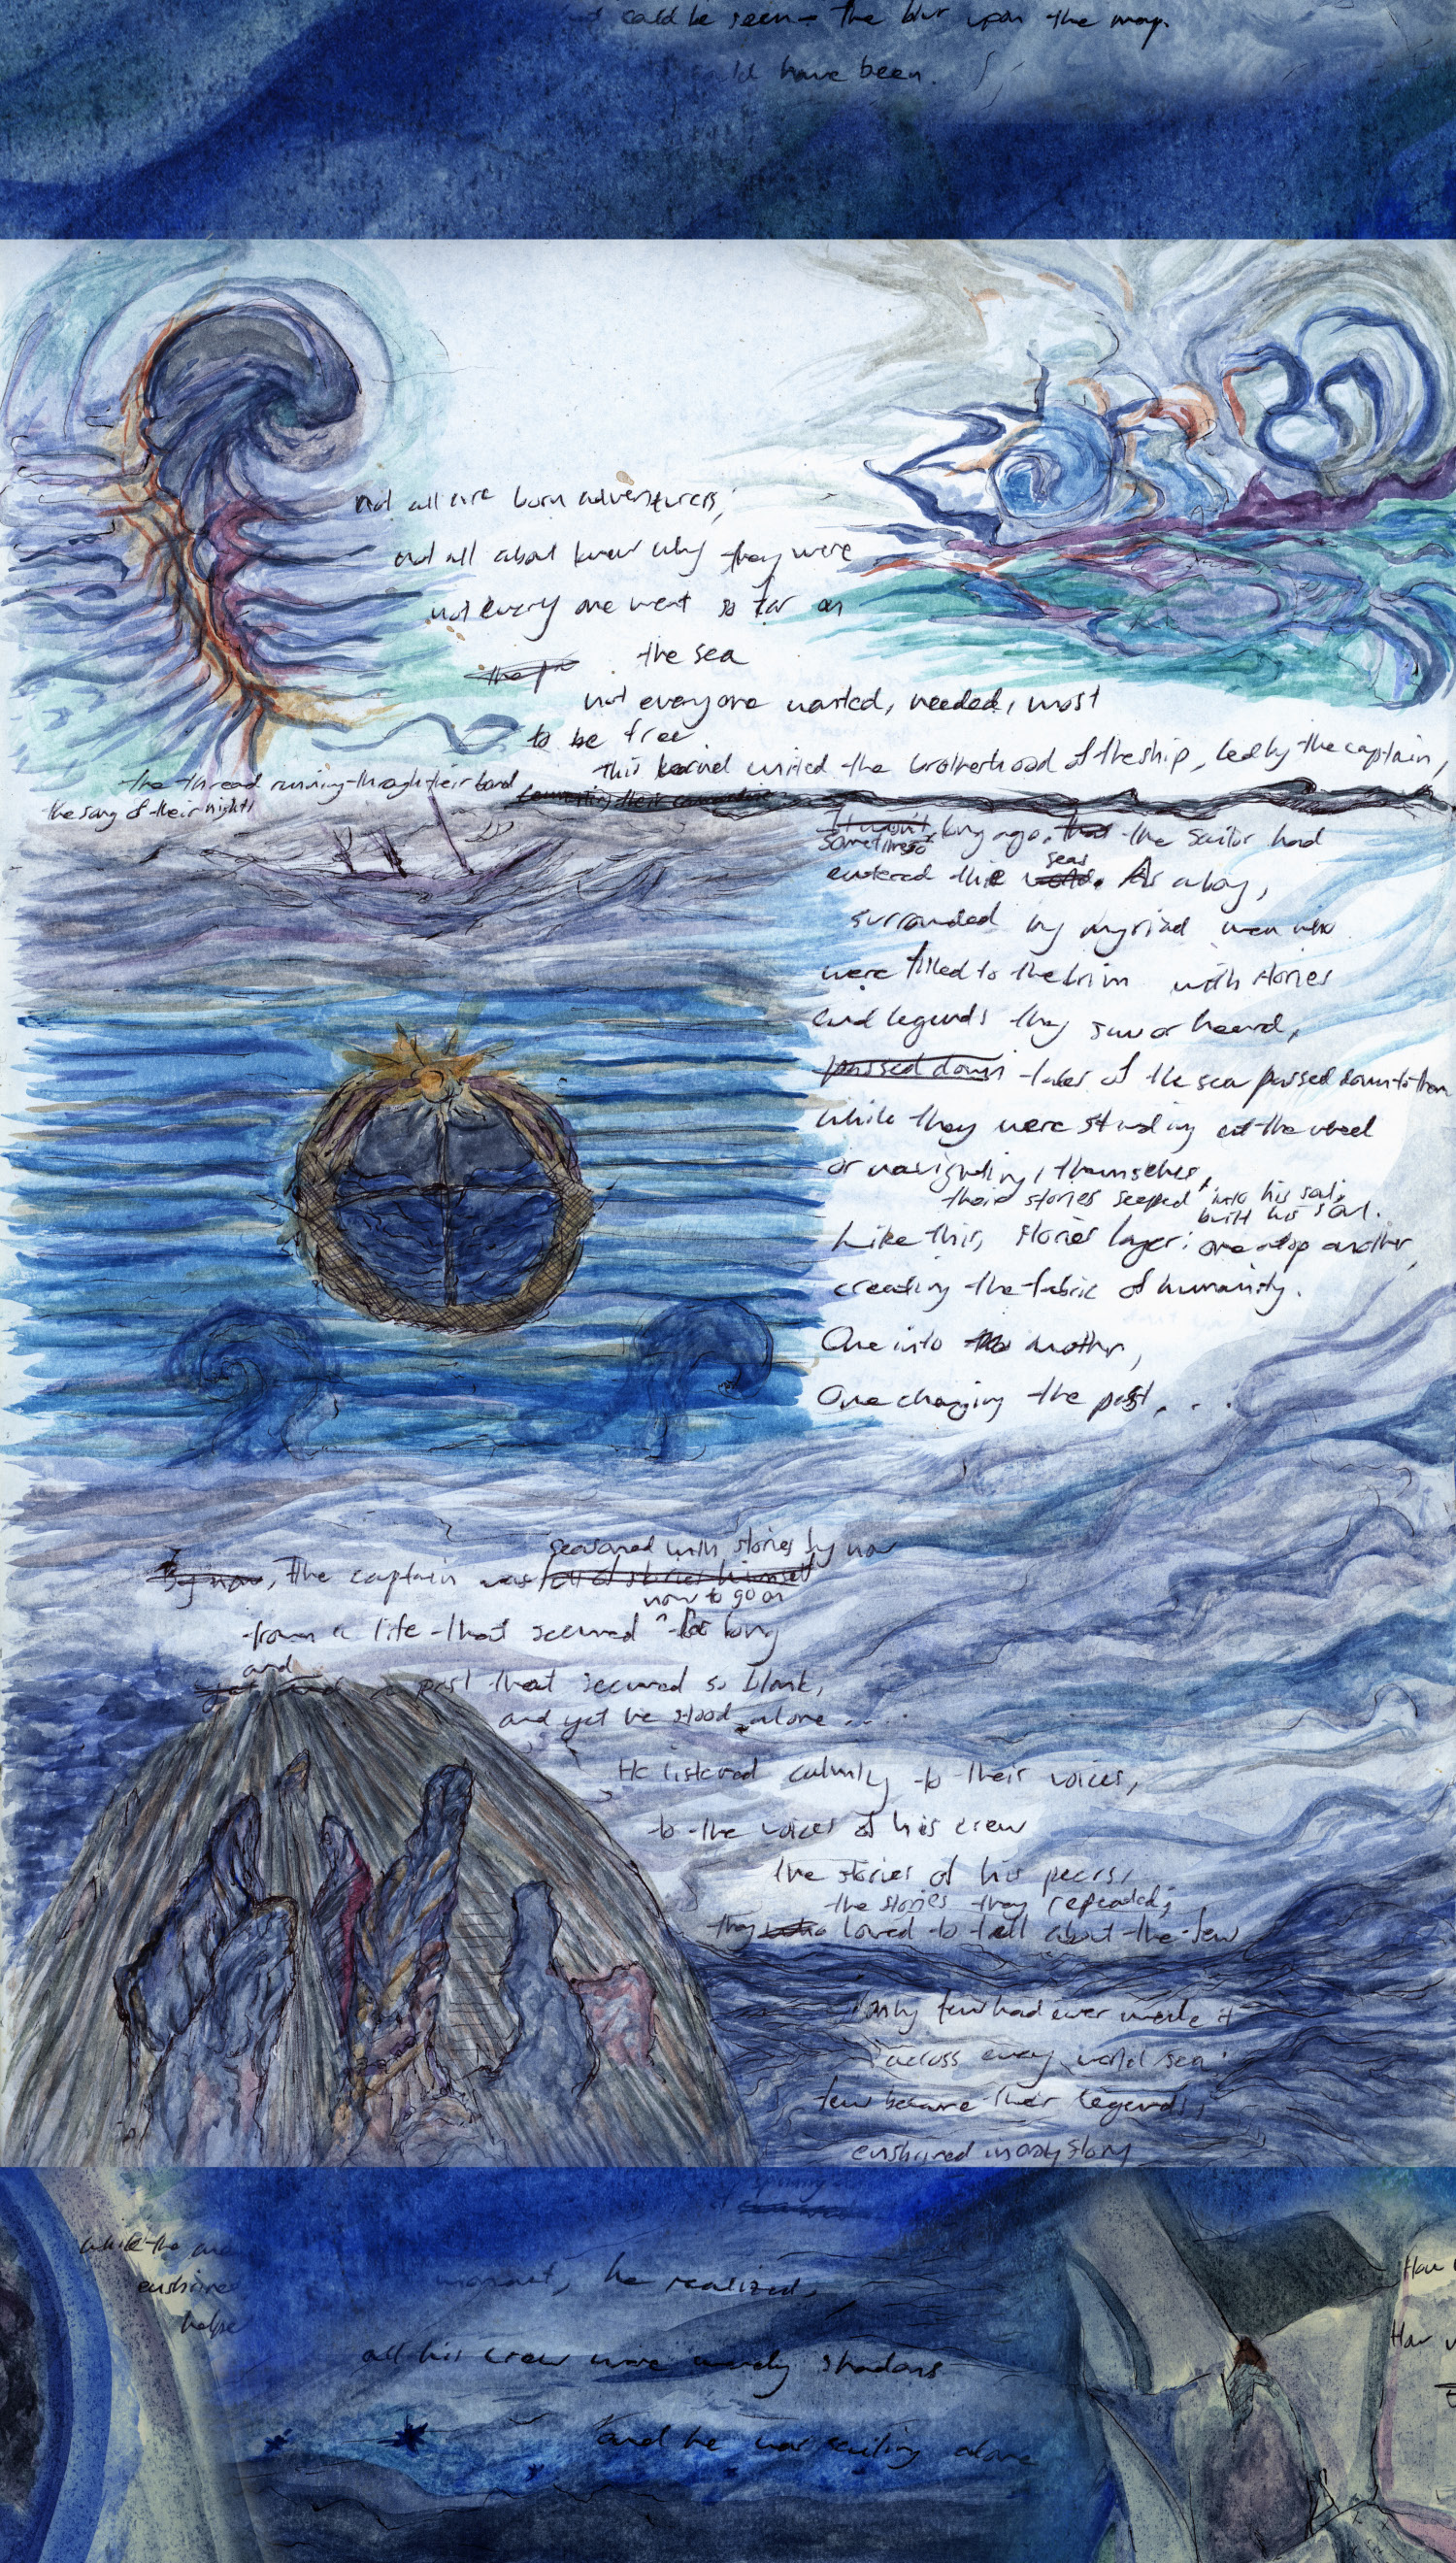 could be seen - the blur upon the map.
have been.
not all are born adventurers,
not all about knew why they were
not every one went so far on
the sea
not everyone wanted, needed, most
to be free
this kernel united the brotherhood of the ship, led by the captain,
the thread running through their band
the song of their nights
It wasn't long ago, that the sailor had
sometimes
seas
entered this world. As a boy,
surrounded by myriad men who
were filled to the brim with stories
and legends they saw or heard,
passed down tales of the sea passed down to them
while they were standing at the wheel
or navigating, themselves,
their stories seeped into his soul,
built his soul.
Like this, stories layer: one atop another,
creating the fabric of humanity.
One into another,
One changing the past . . .
seasoned with stories by now
By now, the captain was full of stories himself
now to go on
from a life that seemed long
and
yet and a past that seemed so blank,
and yet he stood alone ....
He listened calmly to their voices,
to the voices of his crew
the stories of his peers,
the stories they repeated;
they who loved to tell about the few
Only few had ever made it
across every world sea:
few became their legends,
enshrined in story
while the
enshrined
moment, he realized,
all his crew were merely shadows
and he was sailing alone
How
How